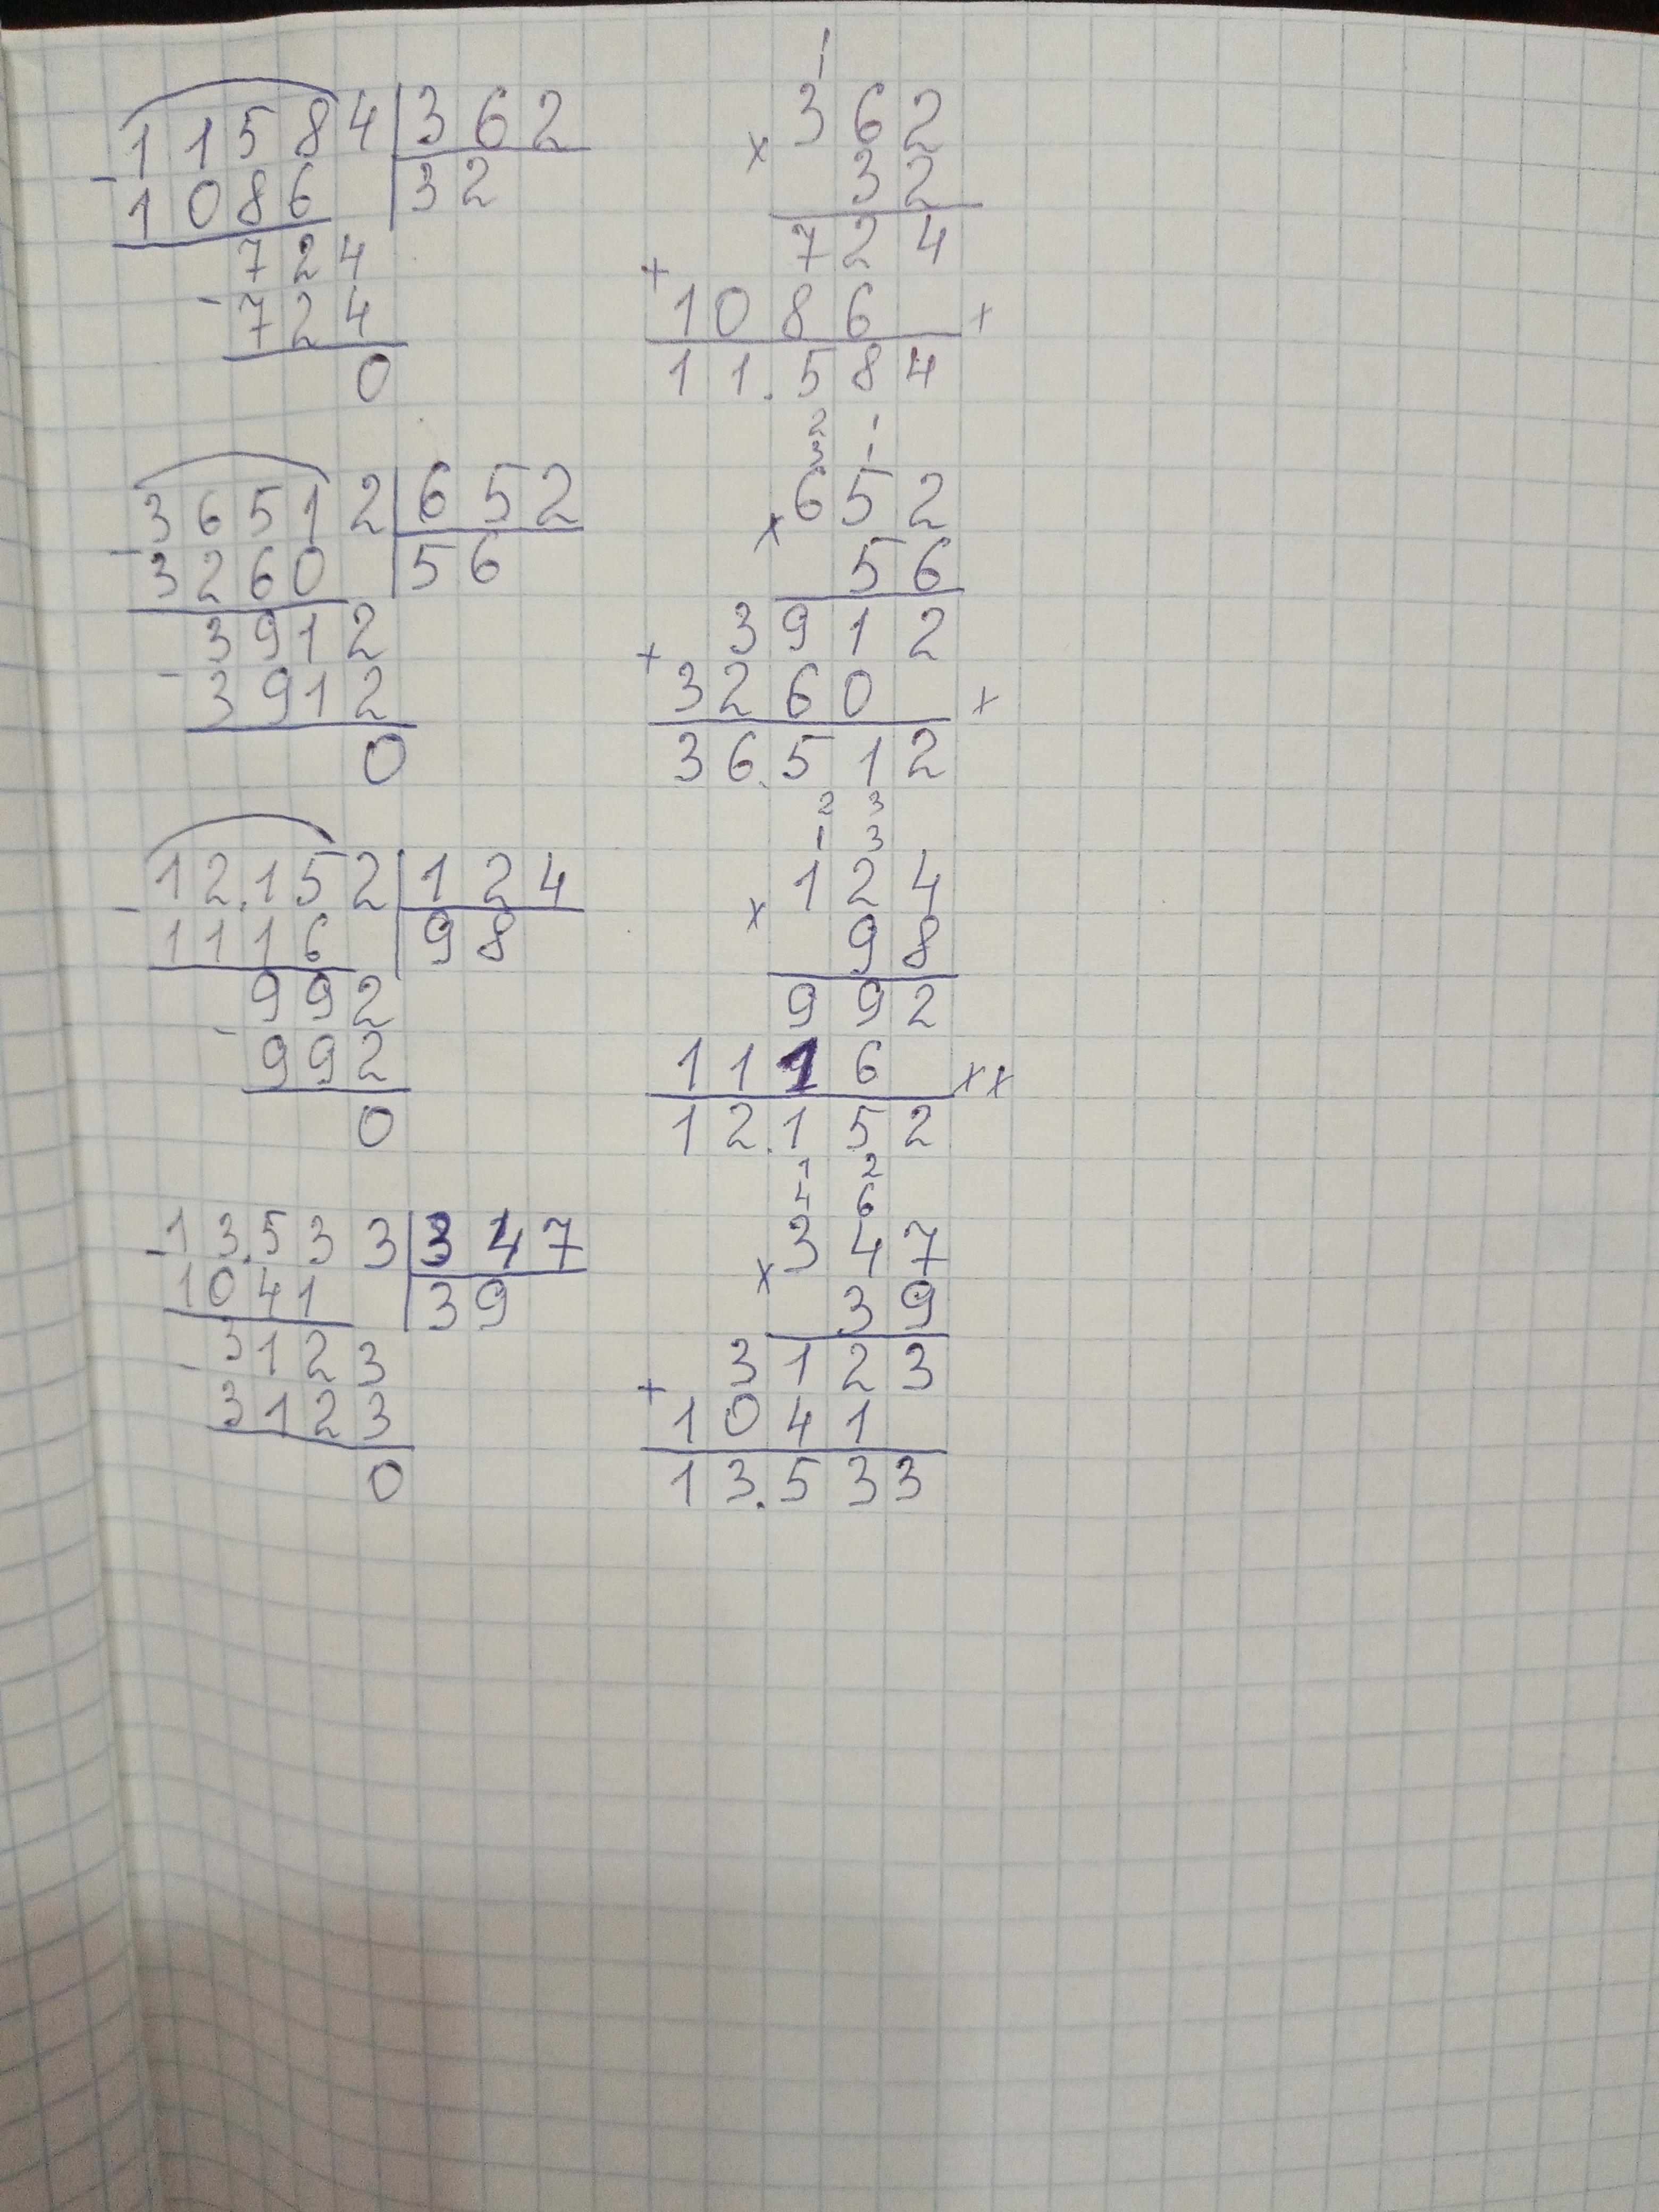 11584 362
- 1086 32
724
- 724
0
1
362
x 32
724
+ 1086 x
11.584
36512 652
- 3260 56
3912
- 3912
0
2 1
3 1
652
x 56
3912
+ 3260 x
36.512
12.152 124
- 1116 98
992
- 992
0
2 3
1 3
124
x 98
992
1116 xx
12.152
- 13.533 347
1041 39
- 3123
3123
0
1 2
4 6
347
x 39
3123
+ 1041
13.533